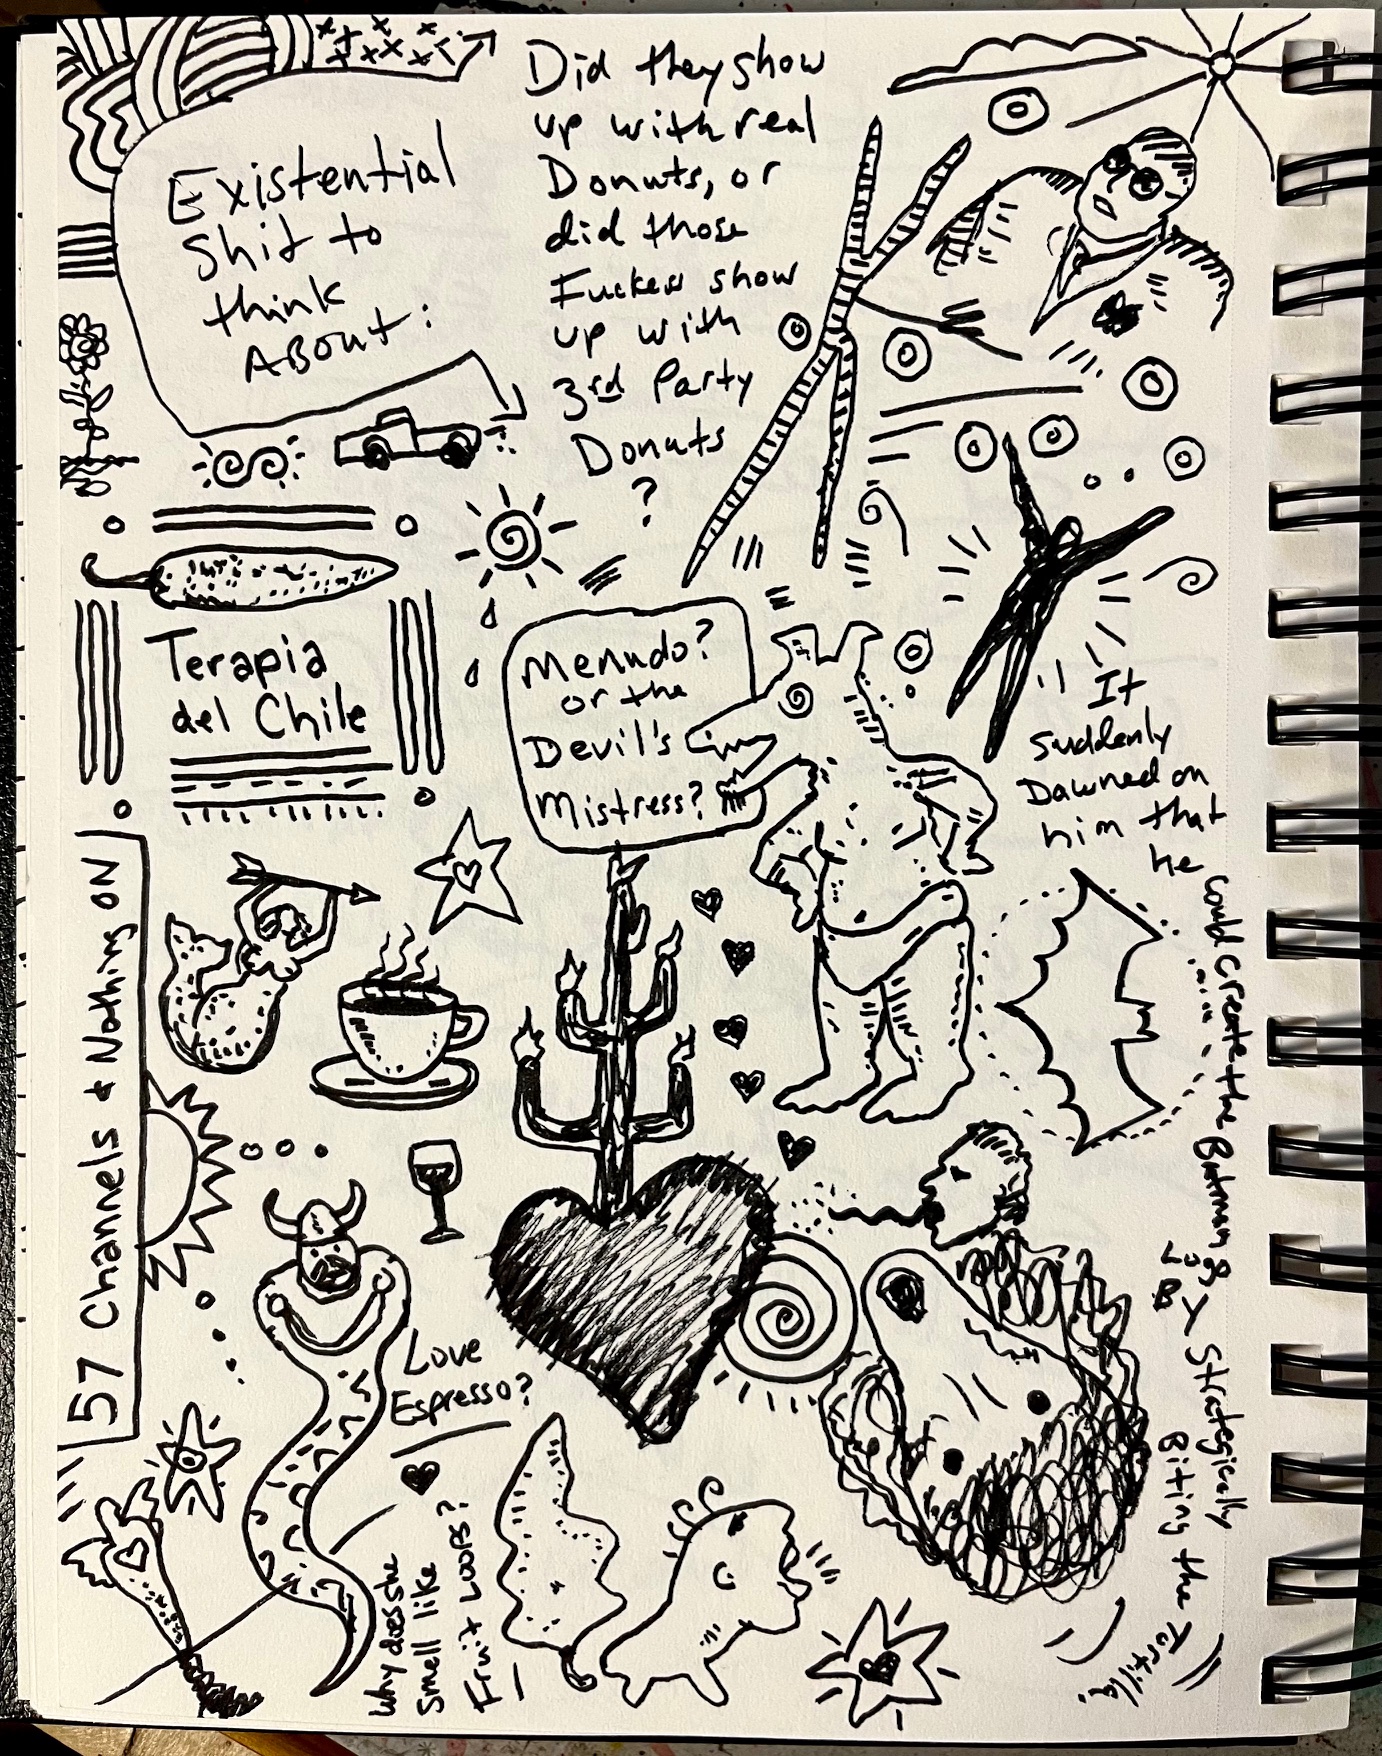 Existential
Shit to
think
About:
Did they show
up with real
Donuts, or
did those
Fuckers show
up with
3rd Party
Donuts
?
Terapia
del Chile
Menudo?
or the
Devil's
Mistress?
It
suddenly
Dawned on
him that
he
could create the Batman logo
By Strategically
Biting the Tortilla.
57 Channels + Nothing ON
Love
Espresso?
Why does she
smell like
Fruit Loops?